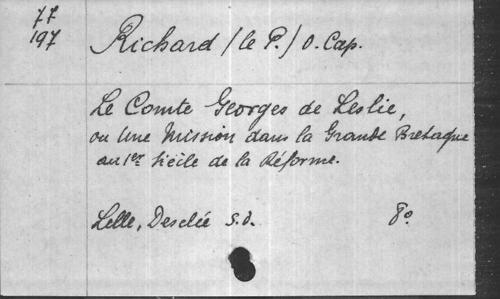 77
197
Richard / le P. / O. Cap.
Le Comte Georges de Leslie,
ou Une Mission dans la Grande Bretagne
au 1er Siécle de la Réforme.
Lille, Desclée S.d. 8o